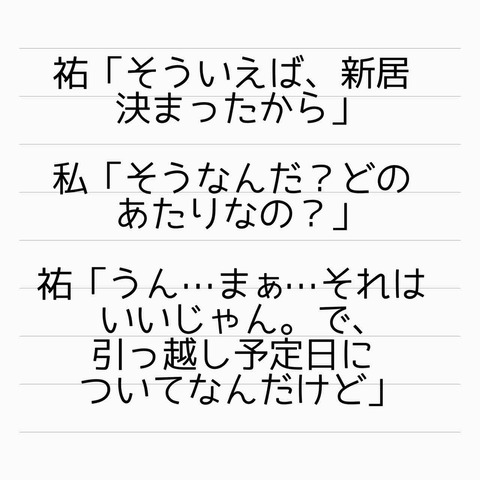 祐「そういえば、新居
決まったから」
私「そうなんだ？どの
あたりなの？」
祐「うん…まぁ…それは
いいじゃん。で、
引っ越し予定日に
ついてなんだけど」